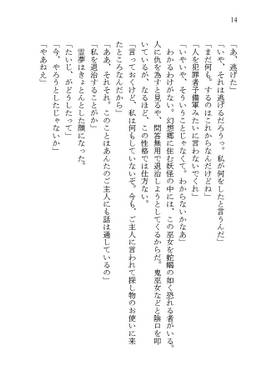 14
「あ、逃げた」
「いや、それは逃げるだろうっ。私が何をしたと言うんだ」
「まだ何も。するのはこれからなんだけどね」
「人を犯罪者予備軍みたいに言わないでくれ」
「いや、そういうことじゃなくて。わからないかなあ」
わかるわけがない。幻想郷に住む妖怪の中には、この巫女を蛇蝎の如く恐れる者がいる。
人に仇を為すと見るや、問答無用で退治しようとしてくるからだ。鬼巫女などと陰口を叩
いているが、なるほど、この性格では仕方ない。
「言っておくけど、私は何もしていないぞ。今も、ご主人に言われて探し物のお使いに来
たところなんだから」
「ああ、それそれ。このことはあんたのご主人にも話は通しているの」
「私を退治することがか」
霊夢はきょとんとした顔になった。
「たいじ、がどうしたって」
「今、やろうとしたじゃないか」
「やあねえ」